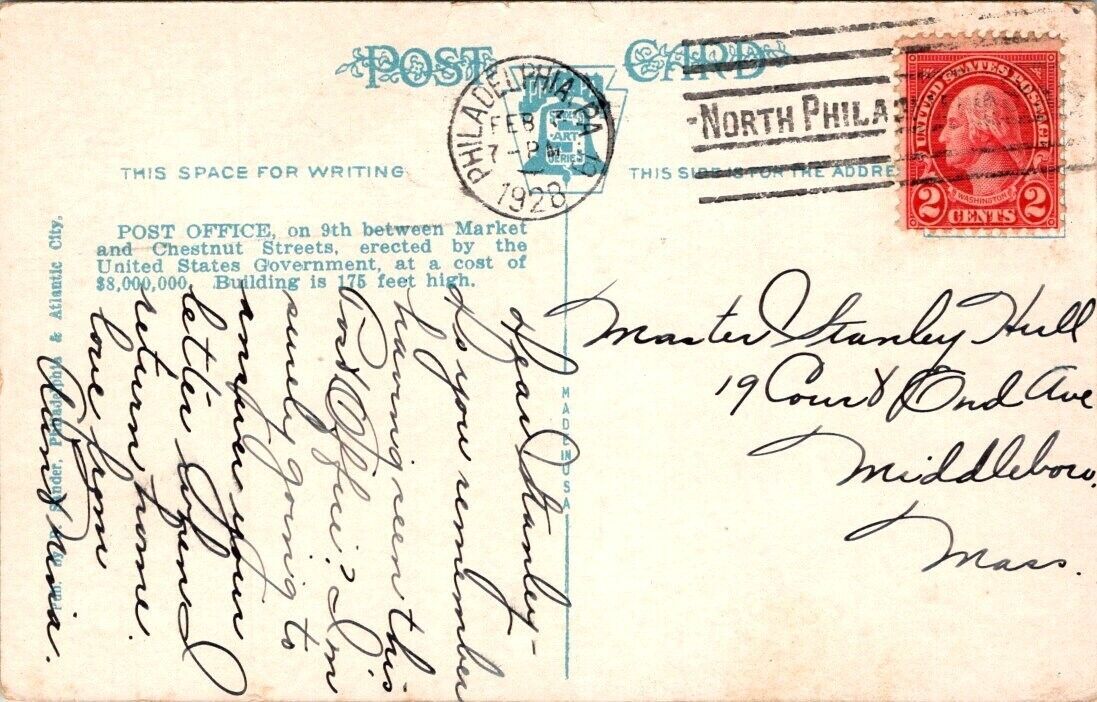 POST CARD
PHILADELPHIA, PA.
FEB
7-PM
1928
NORTH PHILA
UNITED STATES POSTAGE
WASHINGTON
2 CENTS 2
PHILA
ART
SERIES
THIS SPACE FOR WRITING
THIS SIDE IS FOR THE ADDRE
POST OFFICE, on 9th between Market
and Chestnut Streets, erected by the
United States Government, at a cost of
$8,000,000. Building is 175 feet high.
Pub. by Sander, Philadelphia & Atlantic City,
MADE IN USA
Dear Stanley-
Do you remember
having seen this
Post Office? I'm
surely going to
answer your
letter when I
return home.
love from
Aunt
Master Stanley Hull
19 Court End Ave
Middleboro,
Mass.